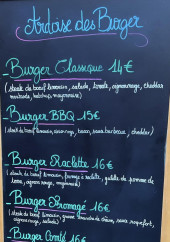 Ardoise des Burger
Burger Classique 14€
(steak de bœuf limousin, salade, tomate, oignon rouge, cheddar
moutarde, ketchup, mayonnaise)
Burger BBQ 15€
(steak de bœuf limousin, oignon rouge, bacon, sauce barbecue, cheddar)
Burger Raclette 16€
(steak de bœuf limousin, fromage à raclette, galette de pomme de
terre, oignon rouge, mayonnaise)
Burger Fromage 16€
(steak de bœuf limousin, sauce roquefort,
oignon rouge, salade)
Burger Comté 16€